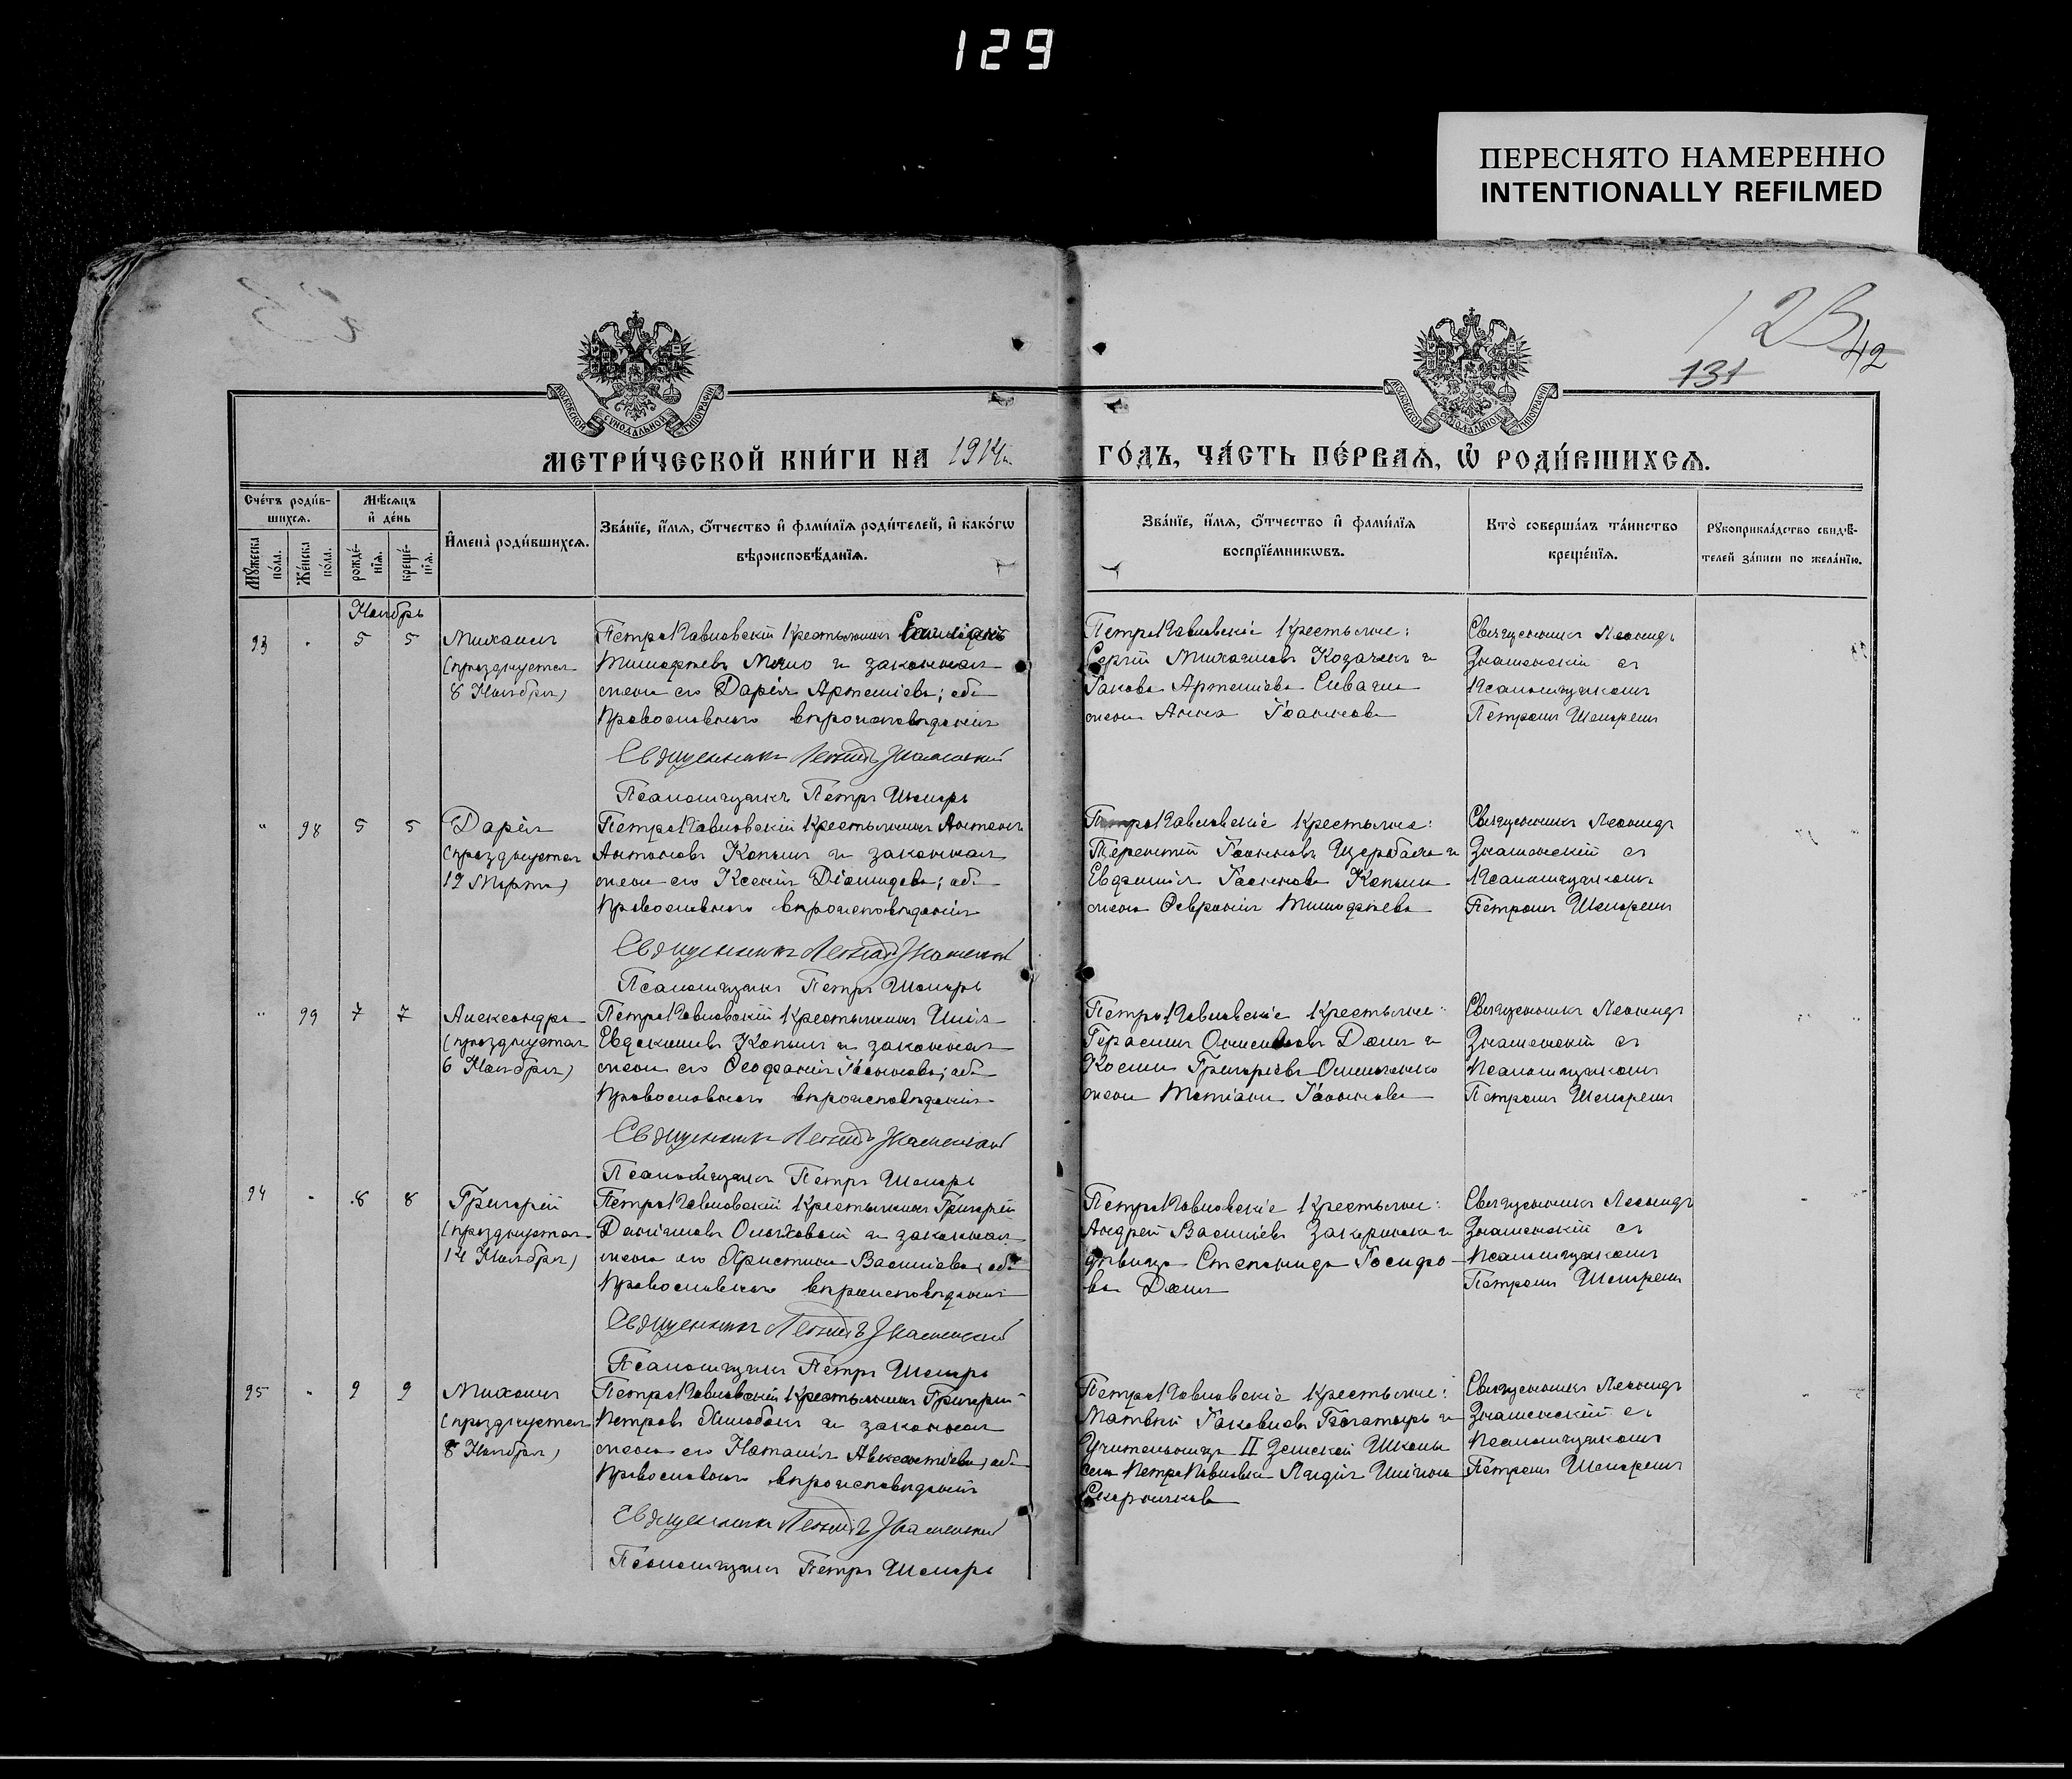 129
ПЕРЕСНЯТО НАМЕРЕННО
INTENTIONALLY REFILMED
123
42
131
МОСКОВСКОЙ СУНОДАЛЬНОЙ ТИПОГРАФІИ
МОСКОВСКОЙ СУНОДАЛЬНОЙ ТИПОГРАФІИ
МЕТРИ́ЧЕСКОЙ КНИ́ГИ НА 1914
ГО́ДЪ, ЧА́СТЬ ПЕ́РВАѦ, Ѡ҆ РОДИ́ВШИХСѦ.
Сче́тъ роди́в-
шихсѧ.
Мꙋ́жеска по́ла.
Же́нска по́ла.
Мѣ́сѧцъ
и҆ де́нь
рожде́-
нїѧ.
креще́-
нїѧ.
И҆мена̀ роди́вшихсѧ.
Зва́нїе, и҆́мѧ, ѻ҆́тчество и҆ фами́лїѧ роди́телей, и҆ како́гѡ
вѣроисповѣ́данїѧ.
Зва́нїе, и҆́мѧ, ѻ҆́тчество и҆ фами́лїѧ
воспрїе́мникѡвъ.
Кто̀ соверша́лъ та́инство
креще́нїѧ.
Рꙋкоприкла́дство свидѣ́-
телей за́писи по жела́нїю.
Ноябрь
93 " 5 5
Михаилъ
(празднуется
8 Ноября)
ПетроПавловскій крестьянинъ
Тимофѣевъ и законная
жена его Дарія Артеміева; оба
Православнаго вѣроисповѣданія
Священникъ Леонидъ Знаменскій
Псаломщикъ Петръ
ПетроПавловскіе крестьяне:
Сергій Михаиловъ Козачекъ и
Іакова Артеміева Сивача
жена Анна Іоаннова
Священникъ Леонидъ
Знаменскій съ
Псаломщикомъ
Петромъ
" 98 5 5
Дарія
(празднуется
19 Марта)
ПетроПавловскій крестьянинъ Антонъ
Антоновъ Копыл и законная
жена его Ксенія Діомидова; оба
Православнаго вѣроисповѣданія
Священникъ Леонидъ Знаменскій
Псаломщикъ Петръ
ПетроПавловскіе крестьяне:
Терентій Іоанновъ Щербата и
Евфимія Іоаннова Копыл
жена Февронія Тимофѣева
Священникъ Леонидъ
Знаменскій съ
Псаломщикомъ
Петромъ
" 99 7 7
Александра
(празднуется
6 Ноября)
ПетроПавловскій крестьянинъ Илія
Евдокимовъ Копыл и законная
жена его Феофанія Іоаннова; оба
Православнаго вѣроисповѣданія
Священникъ Леонидъ Знаменскій
Псаломщикъ Петръ
ПетроПавловскіе крестьяне:
Герасимъ и
Космы Григоріева
жена Татіана Іоаннова
Священникъ Леонидъ
Знаменскій съ
Псаломщикомъ
Петромъ
94 " 8 8
Григорій
(празднуется
14 Ноября)
ПетроПавловскій крестьянинъ Григорій
Даніиловъ Ольховый и законная
жена его Христина Васильева; оба
Православнаго вѣроисповѣданія
Священникъ Леонидъ Знаменскій
Псаломщикъ Петръ
ПетроПавловскіе крестьяне:
Андрей Васильевъ и
дѣвица Степанида Іосифо-
ва
Священникъ Леонидъ
Знаменскій съ
Псаломщикомъ
Петромъ
95 " 9 9
Михаилъ
(празднуется
8 Ноября)
ПетроПавловскій крестьянинъ Григорій
Петровъ и законная
жена его Наталія Авксентіева; оба
Православнаго вѣроисповѣданія
Священникъ Леонидъ Знаменскій
Псаломщикъ Петръ
ПетроПавловскіе крестьяне:
Матвѣй Іаковлевъ Богатырь и
Учительница II Земской Школы
села ПетроПавловки Лидія
Священникъ Леонидъ
Знаменскій съ
Псаломщикомъ
Петромъ